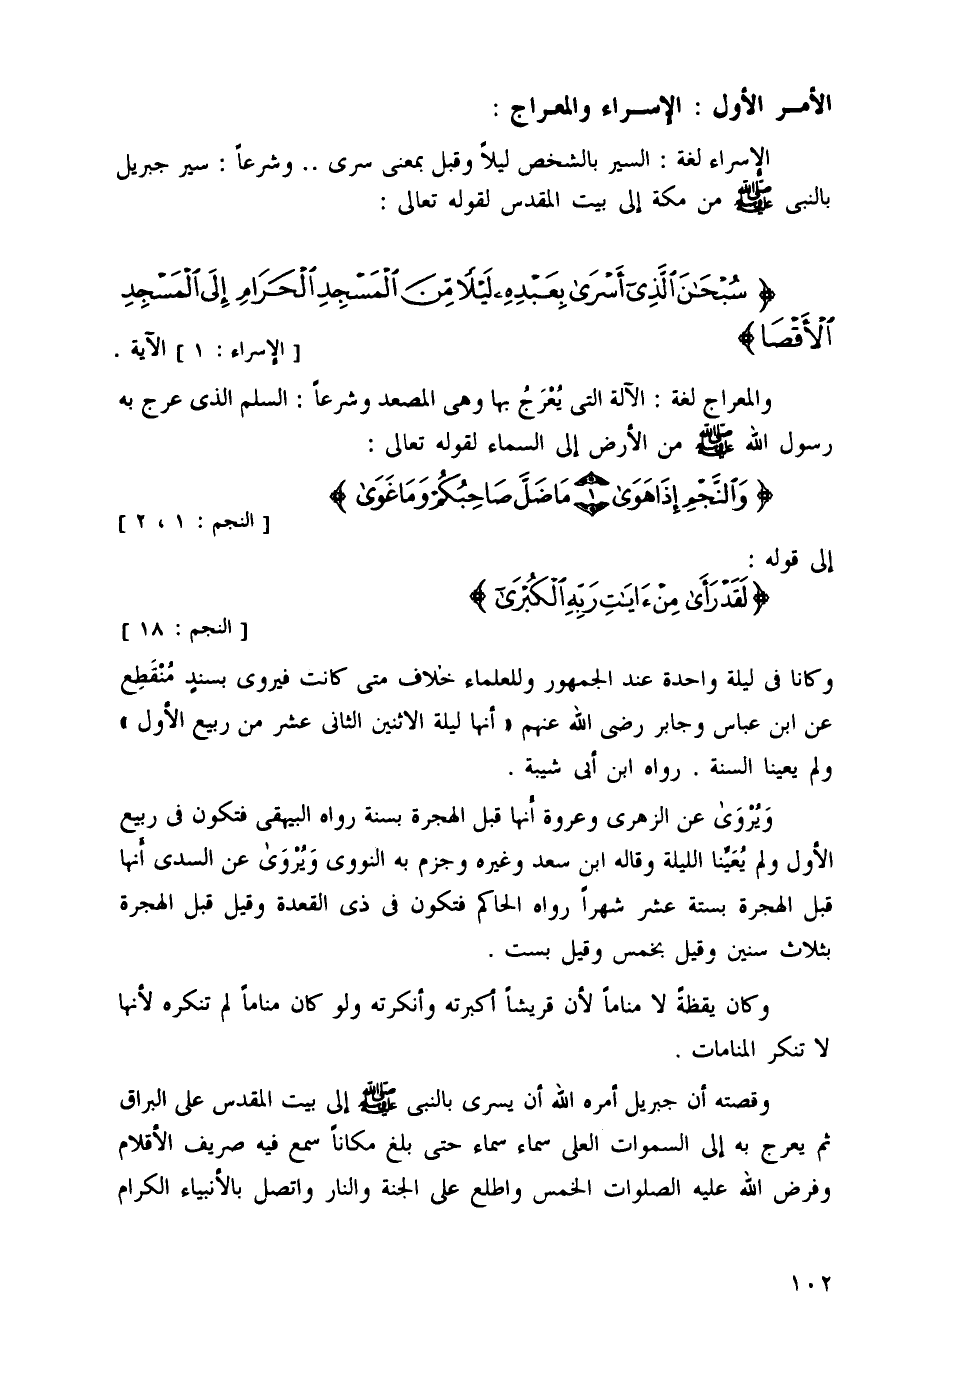 الأمـر الأول : الإسـراء والمعـراج :
الإسراء لغة : السير بالشخص ليلاً وقبل بمعنى سرى .. وشرعاً : سير جبريل
بالنبى ﷺ من مكة إلى بيت المقدس لقوله تعالى :
﴿ سُبْحَٰنَ ٱلَّذِىٓ أَسْرَىٰ بِعَبْدِهِۦ لَيْلًا مِّنَ ٱلْمَسْجِدِ ٱلْحَرَامِ إِلَى ٱلْمَسْجِدِ
ٱلْأَقْصَا ﴾
[ الإسراء : ١ ] الآية .
والمعراج لغة : الآلة التى يُعْرَجُ بها وهى المصعد وشرعاً : السلم الذى عرج به
رسول الله ﷺ من الأرض إلى السماء لقوله تعالى :
﴿ وَٱلنَّجْمِ إِذَا هَوَىٰ ۝١ مَا ضَلَّ صَاحِبُكُمْ وَمَا غَوَىٰ ﴾
[ النجم : ١ ، ٢ ]
إلى قوله :
﴿ لَقَدْ رَأَىٰ مِنْ ءَايَٰتِ رَبِّهِ ٱلْكُبْرَىٰٓ ﴾
[ النجم : ١٨ ]
وكانا فى ليلة واحدة عند الجمهور وللعلماء خلاف متى كانت فيروى بسندٍ مُنْقَطِع
عن ابن عباس وجابر رضى الله عنهم « أنها ليلة الاثنين الثانى عشر من ربيع الأول »
ولم يعينا السنة . رواه ابن أبى شيبة .
وَيُرْوَىٰ عن الزهرى وعروة أنها قبل الهجرة بسنة رواه البيهقى فتكون فى ربيع
الأول ولم يُعَيِّنا الليلة وقاله ابن سعد وغيره وجزم به النووى وَيُرْوَىٰ عن السدى أنها
قبل الهجرة بستة عشر شهراً رواه الحاكم فتكون فى ذى القعدة وقيل قبل الهجرة
بثلاث سنين وقيل بخمس وقيل بست .
وكان يقظةً لا مناماً لأن قريشاً أكبرته وأنكرته ولو كان مناماً لم تنكره لأنها
لا تنكر المنامات .
وقصته أن جبريل أمره الله أن يسرى بالنبى ﷺ إلى بيت المقدس على البراق
ثم يعرج به إلى السموات العلى سماء سماء حتى بلغ مكاناً سمع فيه صريف الأقلام
وفرض الله عليه الصلوات الخمس واطلع على الجنة والنار واتصل بالأنبياء الكرام
١٠٢